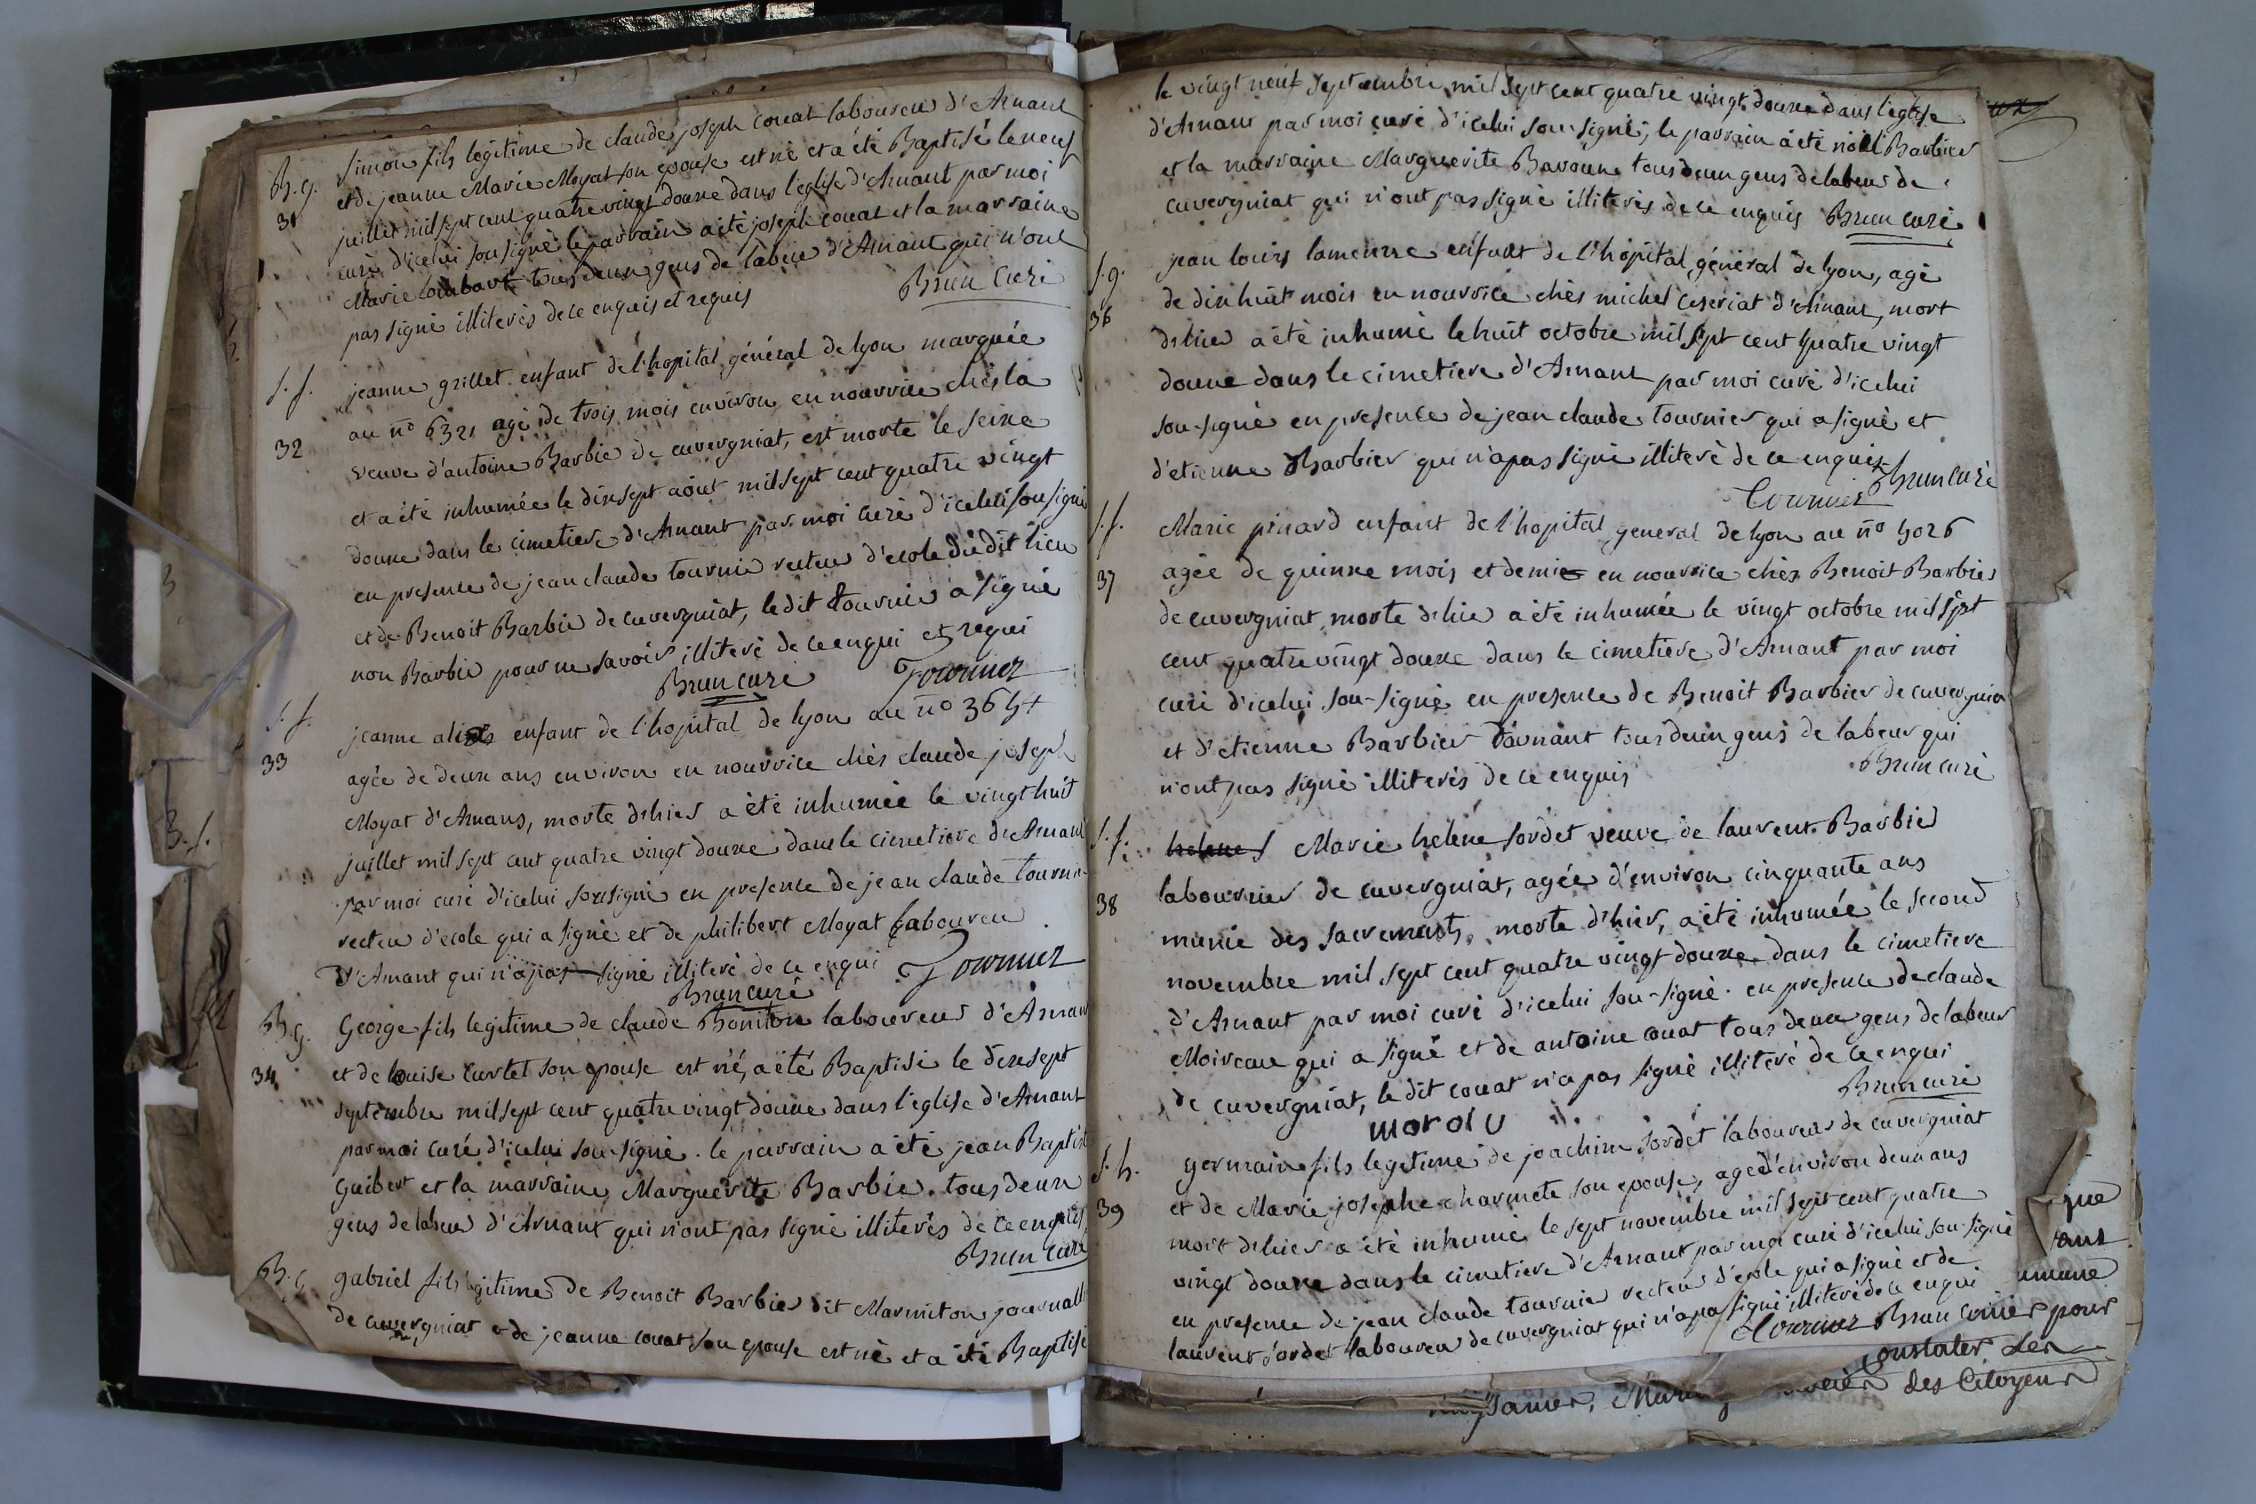 B.g.
31
simon fils légitime de claude joseph couat laboureu d'Arnant
et de jeanne Marie Moyat son epouse est né et a été Baptisé le neuf
juillet mil sept cent quatre vingt douxe dans l'eglise d'Arnant par moi
curé d'icelui sousigné le parrain a été joseph couat et la marraine
Marie tous deux gens de labeur d'Arnant qui n'ont
pas signé illiterés de ce enquis et requis
Brun curé
s. f.
32
jeanne grillet enfant de l'hopital général de lyon marquée
au nº 6321 agé de trois mois environ en nourrice chès la
veuve d'antoine Barbié de cuvergniat, est morte le seixe
et a été inhumée le dixsept aout mil sept cent quatre vingt
douxe dans le cimetiere d'Arnant par moi curé d'icelui sousigné
en presence de jean claude tournié recteu d'ecole dudit lieu
et de Benoit Barbié de cuvergniat, le dit tournié a signé
non Barbié pour ne savoir illiteré de ce enqui et requi
Brun curé Tournier
s. f.
33
jeanne enfant de l'hopital de lyon au nº 3654
agée de deux ans environ en nourrice chès claude joseph
Moyat d'Arnans, morte d'hier a été inhumée le vingt huit
juillet mil sept cent quatre vingt douxe dans le cimetiere d'Arnant
par moi curé d'icelui sousigné en presence de jean claude tournié
recteu d'ecole qui a signé et de philibert Moyat laboureu
d'Arnant qui n'a pas signé illiteré de ce enqui Tournier
Brun curé
B.g.
34
George fils legitime de claude laboureur d'Arnant
et de louise curtet son epouse est né, a été Baptisé le dixsept
septembre mil sept cent quatre vingt douxe dans l'eglise d'Arnant
par moi curé d'icelui sou-signé. le parrain a été jean Baptist
Guibert et la marraine Marguerite Barbié. tous deux
gens de labeu d'Arnant qui n'ont pas signé illiterés de ce enquis
Brun curé
B.g.
gabriel fils legitime de Benoit Barbié dit Marmiton journalié
de cuvergniat et de jeanne couat son epouse est né et a été Baptisé
le vingt neuf septembre mil sept cent quatre vingt douxe dans l'eglise
d'Arnant par moi curé d'icelui sou-signé, le parrain a été noël Barbier
et la marraine Marguerite tous deux gens de labeur de
cuvergniat qui n'ont pas signé illiterés de ce enquis Brun curé
s. g.
36
jean louis enfant de l'hôpital général de lyon, agé
de dix huit mois en nourrice chès michel ceseriat d'Arnant, mort
d'hier a été inhumé le huit octobre mil sept cent quatre vingt
douxe dans le cimetiere d'Arnant par moi curé d'icelui
sou-signé en presence de jean claude tournier qui a signé et
d'etienne Barbier qui n'a pas signé illiteré de ce enquis
Brun curé
Tournier
s. f.
37
Marie pinard enfant de l'hopital general de lyon au nº 5026
agée de quinxe mois et demie en nourrice chès Benoit Barbier
de cuvergniat morte d'hier a été inhumée le vingt octobre mil sept
cent quatre vingt douxe dans le cimetiere d'Arnant par moi
curé d'icelui sou-signé en presence de Benoit Barbier de cuvergnia
et d'etienne Barbier d'arnant tous deux gens de labeur qui
n'ont pas signé illiterés de ce enquis
Brun curé
s. f.
38
helene s Marie helene sordet veuve de laurent Barbié
labourier de cuvergniat, agée d'environ cinquante ans
munie des sacremants, morte d'hier, a été inhumée le second
novembre mil sept cent quatre vingt douxe dans le cimetiere
d'Arnant par moi curé d'icelui sou-signé en presence de claude
Moireau qui a signé et de antoine couat tous deux gens de labeur
de cuvergniat, le dit couat n'a pas signé illiteré de ce enqui
Brun curé
s. h.
39
germain fils legitime de joachim sordet laboureur de cuvergniat
et de Marie josephe charmete son epouse, agé d'environ deux ans
mort d'hier a été inhumé le sept novembre mil sept cent quatre
vingt douxe dans le cimetiere d'Arnant par moi curé d'icelui sou-signé
en presence de jean claude tournié recteur d'ecole qui a signé et de
laurent sordet laboureu de cuvergniat qui n'a pas signé illiteré de ce enqui
Tournier Brun
pour
constater
des Citoyens